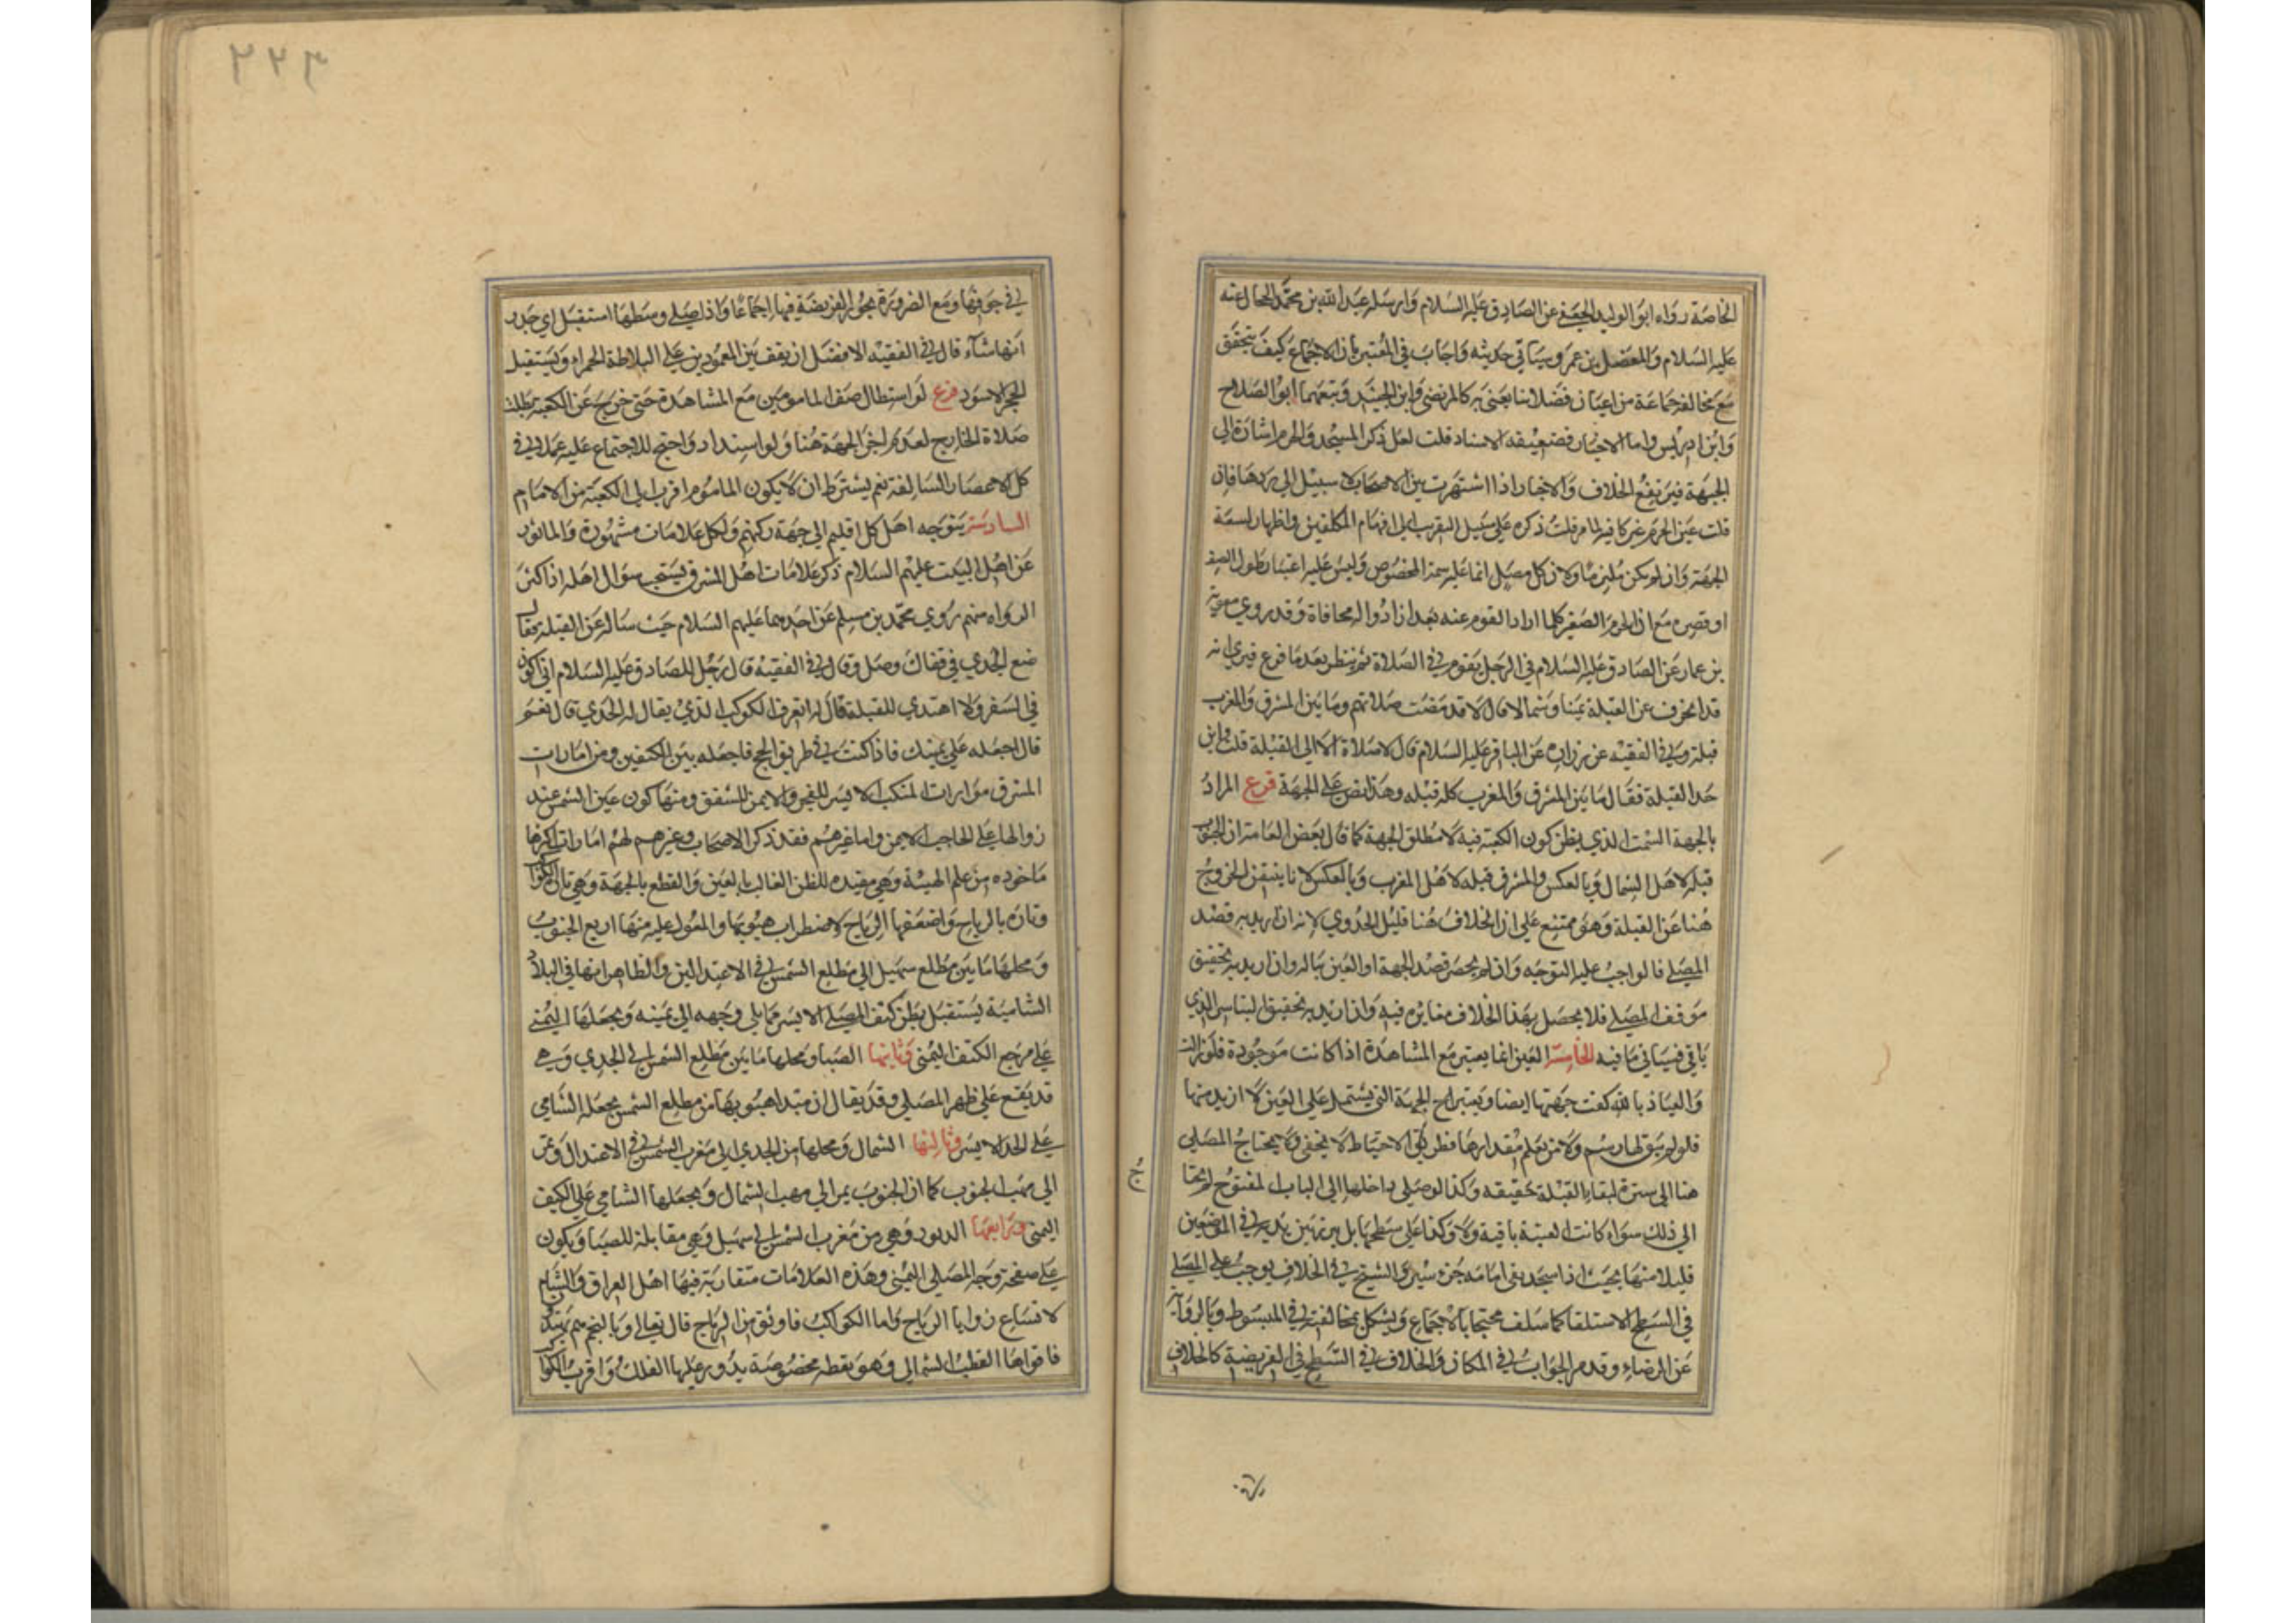 الخاصة رواه ابو الوليد الجعفي عن الصادق عليه السلام وارسله عبد الله بن محمد الحجال عنه
عليه السلام والمفضل بن عمر وسياتي حديثه واجاب في المعتبر بان الاجماع كيف يتحقق
مع مخالفة جماعة من اعيان فضلائنا يعني به كالمرتضى وابن الجنيد وتبعهما ابو الصلاح
وابن ادريس واما الاخبار فضعيفة الاسناد قلت لعل ذكر المسجد والحرم اشارة الى
الجهة فيرتفع الخلاف والاخبار اذا اشتهرت بين الاصحاب لا سبيل الى ردها فان
قلت عين الحرم غير كافية لما مر قلت ذكره على سبيل التقريب الى افهام المكلفين واظهار لسعة
الجهة وان لم يكن ملتزما ولان كل مصل انما عليه سمة المخصوص وليس عليه اعتبار طول الصف
او قصره مع ان الحرم الصغير كلما ازداد القوم عنه بعدا زادوا له محاذاة وقد روي معوية
بن عمار عن الصادق عليه السلام في الرجل يقوم في الصلاة ثم ينظر بعد ما فرغ فيرى انه
قد انحرف عن القبلة يمينا وشمالا قال لا قد مضت صلاتهم وما بين المشرق والمغرب
قبلة وفي الفقيه عن زرارة عن الباقر عليه السلام قال لا صلاة الا الى القبلة قلت واين
حد القبلة فقال ما بين المشرق والمغرب كله قبلة وهذا نص على الجهة فرع المراد
بالجهة السمت الذي يظن كون الكعبة فيه لا مطلق الجهة كما قال بعض العامة ان الجنوب
قبلة لاهل الشمال وبالعكس والمشرق قبلة لاهل المغرب وبالعكس لانا نتيقن الخروج
هنا عن القبلة وهو ممتنع على ان الخلاف هنا قليل الجدوي لانه ان اريد به قصد
المصلي فالواجب عليه التوجه وان لم يحضر قصد الجهة او العين بباله وان اريد به تحقيق
موقف المصلي فلا يحصل بهذا الخلاف مغايرة فيه وان اريد به تحقيق التياسر الذي
ياتي فسياتي ما فيه الخامسة العين انما يعتبر مع المشاهدة اذا كانت موجودة فلو زالت
والعياذ بالله كفت جهتها ايضا ويعتبر الجهة التي يشتمل على العين لا ازيد منها
فلو لم يبق لها رسم ولا من يعلم مقدارها فطريق الاحتياط لا يخفى ولا يحتاج المصلي
هنا الى سترة لبقاء القبلة حقيقه وكذا لو صلى داخلها الى الباب المفتوح لم يحتج
الى ذلك سواء كانت العتبة باقية ولا وكذا على سطحها بل يبرز بين يديه في الموضعين
قليلا منها بحيث اذا سجد بقي امامه جزء يسير والشيخ في الخلاف يوجب على المصلي
في السطح الاستلقا كما سلف محتجا بالاجماع ويشكل بمخالفته في المبسوط وبالرواية
عن الرضا وقد مر الجواب في المكان والخلاف في السطح في الفريضة كالخلاف
في جوفها ومع الضرورة يجوز الفريضة فيها اجماعا واذا صلى وسطها استقبل اي جدر
انها شاء قال في الفقيه الافضل ان يقف بين العمودين على البلاطة الحمراء ويستقبل
الحجر الاسود فرع لو استطال صف المامومين مع المشاهدة حتى خرج عن الكعبة بطلت
صلاة الخارج لعدم اجزاء الجهة هنا ولو استدار واحتج للاجتماع عليه عملا في
كل الاعصار السالفة نعم يشترط ان لا يكون الماموم اقرب الى الكعبة من الامام
السادسة يتوجه اهل كل اقليم الى جهة ركنهم ولكل علامات مشهورة والماثور
عن اهل البيت عليهم السلام ذكر علامات اهل المشرق لسبب سؤال اهله اذ اكثر
الرواه منهم روي محمد بن مسلم عن احدهما عليهم السلام حيث ساله عن القبلة فقال
ضع الجدي في قفاك وصل وقال في الفقيه قال رجل للصادق عليه السلام اني اكون
في السفر ولا اهتدي للقبلة فقال له اتعرف الكوكب الذي يقال له الجدي قال نعم
قال اجعله على يمينك فاذا كنت في طريق الحج فاجعله بين الكتفين ومن امارات
المشرق موازات المنكب الايسر للفجر والايمن للشفق ومنها كون عين الشمس عند
زوالها على الحاجب الايمن واما غيرهم فقد ذكر الاصحاب وغيرهم لهم امارات اكثرها
ماخوذه من علم الهيئة وهي مفيدة للظن الغالب بالعين والقطع بالجهة وهي تارة بالكواكب
وتارة بالرياح واضعفها الرياح لاضطراب هبوبها والمعول عليه منها اربع الجنوب
ومحلها ما بين مطلع سهيل الى مطلع الشمس في الاعتدالين والظاهر انها في البلاد
الشامية يستقبل بطن كتف المصلي الايسر مما يلي وجهه الى يمينه ويجعلها اليمني
على مرجع الكتف اليمنى وثانيها الصبا ومحلها ما بين مطلع الشمس الى الجدي وهي
قد يقع على ظهر المصلي وقد يقال ان مبتدا هبوبها من مطلع الشمس يجعله الشامي
على الخد الايسر وثالثها الشمال ومحلها من الجدي الى مغرب الشمس في الاعتدال وتمر
الى مهب الجنوب كما ان الجنوب يمر الى مهب الشمال ويجعلها الشامي على الكتف
اليمنى ورابعها الدبور وهي من مغرب الشمس الى سهيل وهي مقابلة للصبا ويكون
على صفحة وجه المصلي اليمنى وهذه العلامات متقاربة فيها اهل العراق والشام
لاتساع زوايا الرياح واما الكواكب فاوثق من الرياح قال تعالى وبالنجم هم يهتدون
فاقواها القطب الشمالي وهو نقطه مخصوصة يدور عليها الفلك واقرب الكواكب